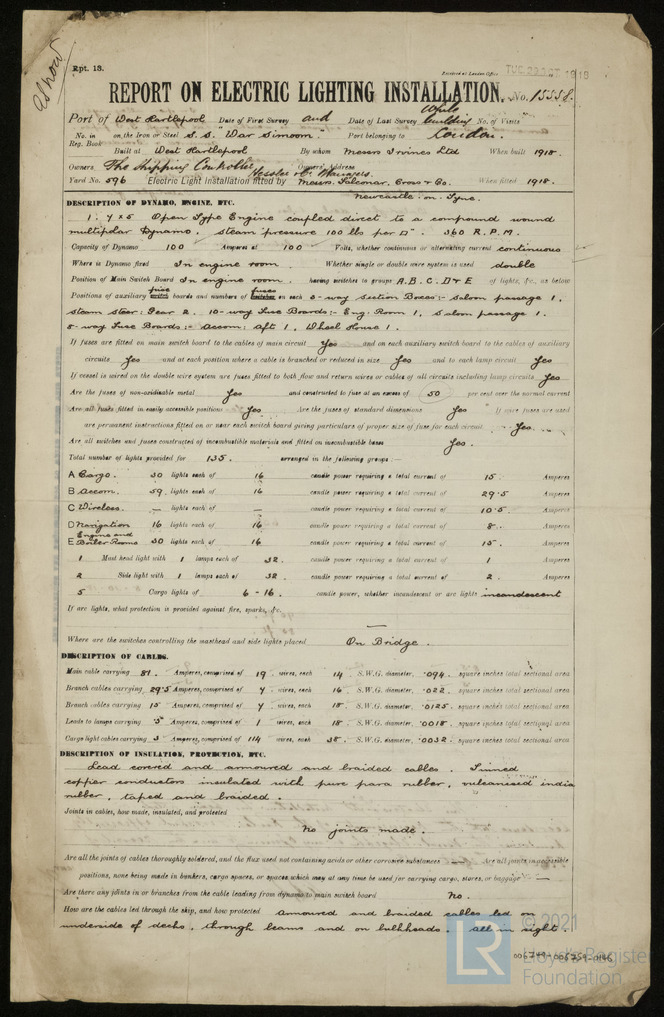 as now
Rpt. 13.
Received at London Office TUE 29 OCT 1918
REPORT ON ELECTRIC LIGHTING INSTALLATION. No. 15558.
Port of West Hartlepool Date of First Survey and Date of Last Survey While building No. of Visits
No. in Reg. Book on the Iron or Steel S.S. "War Simoom" Port belonging to London.
Built at West Hartlepool By whom Messrs Irvines Ltd When built 1918.
Owners The Shipping Controller Owners' Address
Yard No. 596 Electric Light Installation fitted by Messrs. Falconar, Cross & Co. When fitted 1918.
Newcastle-on-Tyne.
DESCRIPTION OF DYNAMO, ENGINE, ETC.
1: 7 x 5 Open Type Engine coupled direct to a compound wound
multipolar Dynamo. steam pressure 100 lbs per □". 360 R.P.M.
Capacity of Dynamo 100 Amperes at 100 Volts, whether continuous or alternating current continuous
Where is Dynamo fixed In engine room. Whether single or double wire system is used double
Position of Main Switch Board In engine room. having switches to groups A.B.C.D & E of lights, &c., as below
Positions of auxiliary switch fuse boards and numbers of switches fuses on each 8-way Section Boxes:- Saloon passage 1,
steam steer: Gear 2. 10-way Fuse Boards:- Eng. Room 1, Saloon passage 1.
8-way Fuse Boards:- Accom: Aft 1, Wheel House 1.
If fuses are fitted on main switch board to the cables of main circuit Yes and on each auxiliary switch board to the cables of auxiliary
circuits Yes and at each position where a cable is branched or reduced in size Yes and to each lamp circuit Yes
If vessel is wired on the double wire system are fuses fitted to both flow and return wires or cables of all circuits including lamp circuits Yes
Are the fuses of non-oxidizable metal Yes and constructed to fuse at an excess of 50 per cent over the normal current
Are all fuses fitted in easily accessible positions Yes Are the fuses of standard dimensions Yes If wire fuses are used
are permanent instructions fitted on or near each switch board giving particulars of proper size of fuse for each circuit Yes.
Are all switches and fuses constructed of incombustible materials and fitted on incombustible bases Yes.
Total number of lights provided for 135. arranged in the following groups:—
A Cargo. 30 lights each of 16 candle power requiring a total current of 15 Amperes
B Accom. 59 lights each of 16 candle power requiring a total current of 29.5 Amperes
C Wireless. — lights each of — candle power requiring a total current of 10.5 Amperes
D Navigation 16 lights each of 16 candle power requiring a total current of 8 Amperes
E Engine and Boiler Rooms 30 lights each of 16 candle power requiring a total current of 15 Amperes
1 Mast head light with 1 lamps each of 32. candle power requiring a total current of 1 Amperes
2 Side light with 1 lamps each of 32. candle power requiring a total current of 2 Amperes
5 Cargo lights of 6 - 16. candle power, whether incandescent or arc lights incandescent
If arc lights, what protection is provided against fire, sparks, &c.
—
Where are the switches controlling the masthead and side lights placed On Bridge.
DESCRIPTION OF CABLES.
Main cable carrying 81. Amperes, comprised of 19 wires, each 14 S.W.G. diameter, .094 square inches total sectional area
Branch cables carrying 29.5 Amperes, comprised of 7 wires, each 16 S.W.G. diameter, .022 square inches total sectional area
Branch cables carrying 15 Amperes, comprised of 7 wires, each 18 S.W.G. diameter, .0125 square inches total sectional area
Leads to lamps carrying .5 Amperes, comprised of 1 wires, each 18 S.W.G. diameter, .0018 square inches total sectional area
Cargo light cables carrying 3 Amperes, comprised of 114 wires, each 38 S.W.G. diameter, .0032 square inches total sectional area
DESCRIPTION OF INSULATION, PROTECTION, ETC.
Lead covered and armoured and braided cables. Tinned
copper conductors insulated with pure para rubber, vulcanised india
rubber, taped and braided.
Joints in cables, how made, insulated, and protected
No joints made.
Are all the joints of cables thoroughly soldered, and the flux used not containing acids or other corrosive substances — Are all joints in accessible
positions, none being made in bunkers, cargo spaces, or spaces which may at any time be used for carrying cargo, stores, or baggage —
Are there any joints in or branches from the cable leading from dynamo to main switch board No.
How are the cables led through the ship, and how protected Armoured and braided cables led on
underside of decks, through beams and on bulkheads. all in sight.
006749-006754-0146
LR
© 2021
Lloyd's Register
Foundation